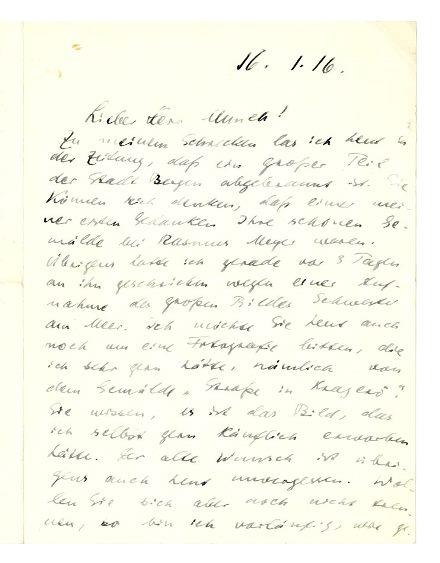 16. 1. 16.
Lieber Herr Munch!
Zu meinem Schrecken las ich heut in
der Zeitung, daß ein großer Teil
der Stadt Bergen abgebrannt ist. Sie
können sich denken, daß einer mei-
ner ersten Gedanken Ihre schönen Ge-
mälde bei Rasmus Meyer waren.
Übrigens hatte ich gerade vor 3 Tagen
an ihn geschrieben wegen einer Auf-
nahme des großen Bildes
am Meer. Ich möchte Sie heut auch
noch um eine Fotografie bitten, die
ich sehr gern hätte, nämlich von
dem Gemälde „Straße in Kragerö“.
Sie wissen, es ist das Bild, das
ich selbst gern käuflich erworben
hätte. Der alte Wunsch ist übri-
gens auch heut unverändert. Wol-
len Sie sich aber noch nicht tren-
nen, so bin ich vorläufig, wie ge-